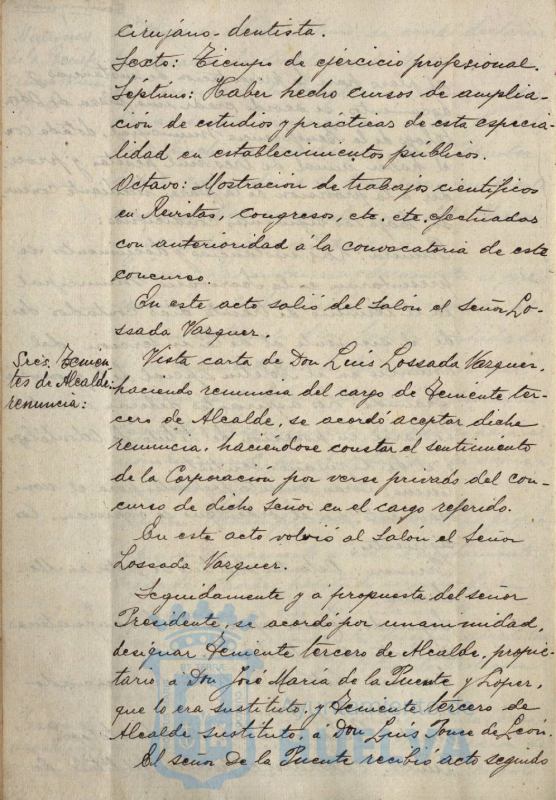 cirujano-dentista.
Sexto: Tiempo de ejercicio profesional.
Séptimo: Haber hecho cursos de amplia-
ción de estudios y prácticas de esta especia-
lidad en establecimientos públicos.
Octavo: Mostración de trabajos científicos
en Revistas, Congresos, etc. etc. efectuadas
con anterioridad á la convocatoria de este
concurso.
En este acto salió del Salón el señor Lo-
ssada Vazquez.
Sres. Tenien-
tes de Alcalde:
renuncia:
Vista carta de Don Luis Lossada Vazquez,
haciendo renuncia del cargo de Teniente ter-
cero de Alcalde, se acordó aceptar dicha
renuncia, haciéndose constar el sentimiento
de la Corporación por verse privado del con-
curso de dicho señor en el cargo referido.
En este acto volvió al Salón el Señor
Lossada Vazquez.
Seguidamente y á propuesta del señor
Presidente, se acordó por unanimidad,
designar Teniente tercero de Alcalde, propie-
tario á Don José María de la Puente y López,
que lo era sustituto, y Teniente tercero de
Alcalde sustituto, á Don Luis Ponce de León.
El señor de la Puente recibió acto seguido
HUELVA